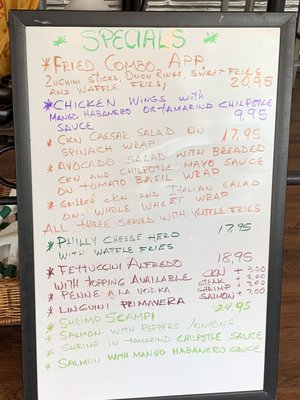 * SPECIALS *
* FRIED COMBO APP
ZUCHINI STICKS, ONION RINGS, SWEET FRIES
AND WAFFLE FRIES; 20,95
* CHICKEN WINGS WITH
MANGO HABANERO OR TAMARIND CHILPOTLE
SAUCE 9,95
* CKN CAESAR SALAD ON
SPINACH WRAP 17,95
* AVOCADO SALAD WITH BREADED
CKN AND CHILPOTLE MAYO SAUCE
ON TOMATO BASIL WRAP
* GRILLED CKN AND ITALIAN SALAD
ON WHOLE WHEAT WRAP
ALL THREE SERVED WITH WAFFLE FRIES
* PHILLY CHEESE HERO 17,95
WITH WAFFLE FRIES
* FETTUCCINI ALFREDO 18,95
WITH TOPPING AVAILABLE CKN +
* PENNE A LA VODKA STEAK +
* LINGUINI PRIMAVERA SHRIMP +
SALMON +
* SHRIMP SCAMPI 24,95
* SALMON WITH PEPPERS / ONIONS
* SHRIMP IN TAMARIND CHILPOTLE SAUCE
* SALMON WITH MANGO HABANERO SAUCE